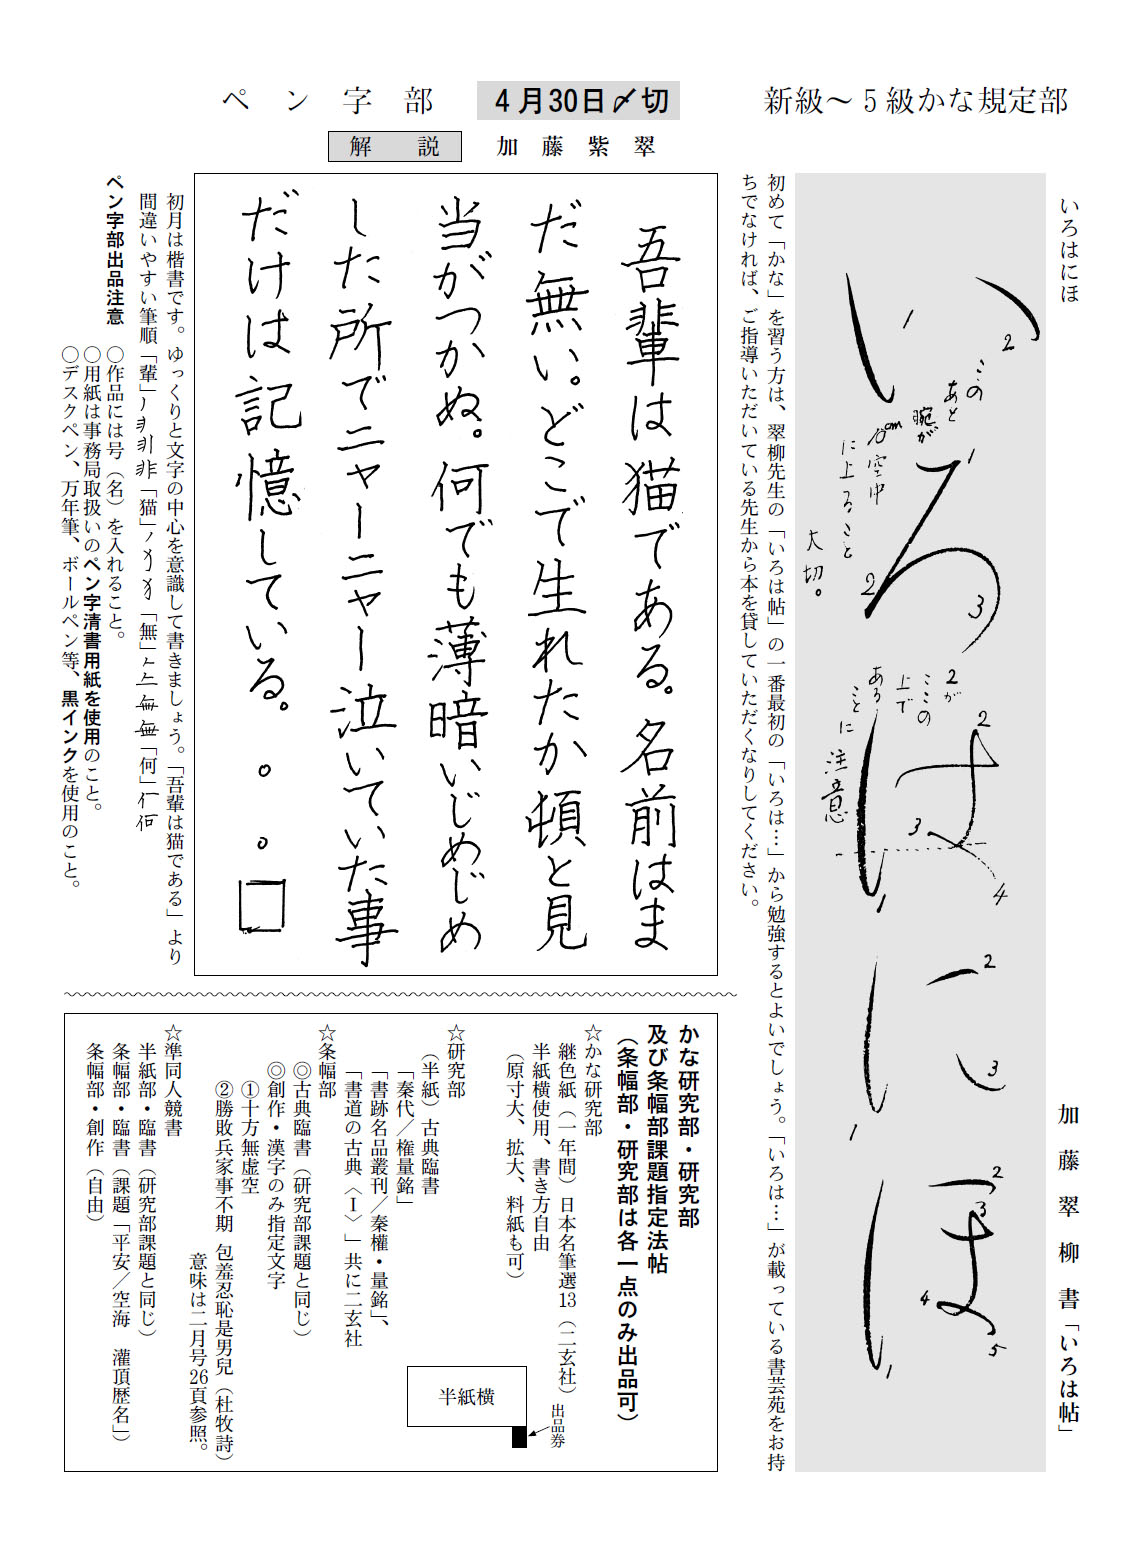 新級～5級かな規定部
4月30日〆切
ペン字部
解説
加藤紫翠
いろはにほ
加藤翠柳書「いろは帖」
いろはにほ
1
2
このあと
腕が
10cm空中
に上ること
大切。
1
2
3
2が
ここの
上で
ある
ことに
注意
2
3
4
1
2
3
1
2
3
4
5
1
初めて「かな」を習う方は、翠柳先生の「いろは帖」の一番最初の「いろは…」から勉強するとよいでしょう。「いろは…」が載っている書芸苑をお持
ちでなければ、ご指導いただいている先生から本を貸していただくなりしてください。
吾輩は猫である。名前はま
だ無い。どこで生れたか頓と見
当がつかぬ。何でも薄暗いじめじめ
した所でニャーニャー泣いていた事
だけは記憶している。
初月は楷書です。ゆっくりと文字の中心を意識して書きましょう。「吾輩は猫である」より
間違いやすい筆順「輩」「猫」「無」「何」
ペン字部出品注意　○作品には号（名）を入れること。
○用紙は事務局取扱いのペン字清書用紙を使用のこと。
○デスクペン、万年筆、ボールペン等、黒インクを使用のこと。
かな研究部・研究部
及び条幅部課題指定法帖
（条幅部・研究部は各一点のみ出品可）
☆かな研究部
継色紙（一年間）日本名筆選13（二玄社）
半紙横使用、書き方自由
（原寸大、拡大、料紙も可）
出品券
半紙横
☆研究部
（半紙）古典臨書
「秦代／権量銘」
「書跡名品叢刊／秦權・量銘」、
「書道の古典〈Ⅰ〉」共に二玄社
☆条幅部
◎古典臨書（研究部課題と同じ）
◎創作・漢字のみ指定文字
①十方無虚空
②勝敗兵家事不期　包羞忍恥是男兒（杜牧詩）
意味は二月号26頁参照。
☆準同人競書
半紙部・臨書（研究部課題と同じ）
条幅部・臨書（課題「平安／空海　灌頂歴名」）
条幅部・創作（自由）